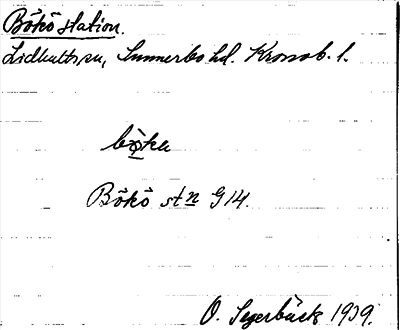 Bökö station.
Lidhults sn, Sunnerbo hd. Kronob. l.
Bökö stn G 14.
O. Segerbäck 1939.